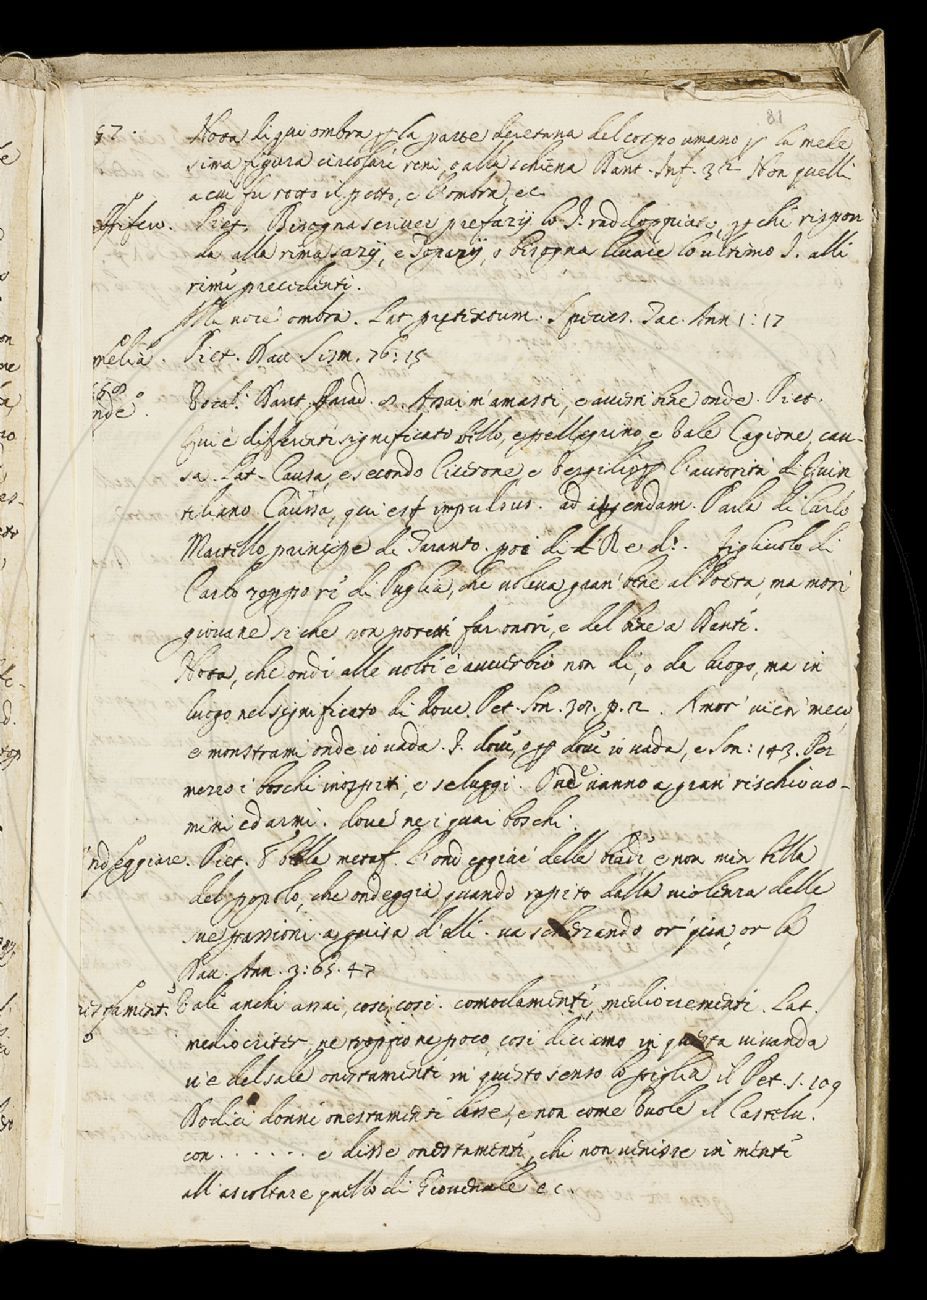 18.
57. Nota di qui ombra p la parte deretana del corpo umano p la mede
sima figura circolari reni, o alla schiena Dant. Inf. 32 Non quelli
a cui fu rotto il petto, e l'ombra, ec.
Offiscu. Piet. Bisogna scriver prefazij lo J. raddoppiar; p chè rispon
da alla rima sazij, e Topazij, o bisogna levare lo ultimo J. alli
rimi precedenti.
Alla voce ombra. Lat. prętextum. Species. Tac. Ann 1:17
melia. Piet. Dau Scism. 76:15
onde. Vocab. Dant. Parad. 8. Assai m'amasti, e avesti bene onde. Piet.
Qui è differente significato bello, e pellegrino, e vale Cagione, cau-
sa. Lat. Causa, e secondo Cicerone e Vergilio p l'autorità di Quin
tiliano Caussa, qui est impulsus. ad agendam. Parla di Carlo
Martello principe di Taranto. poi di Re di. figliuolo di
Carlo zoppo rè di Puglia, che voleva gran bene al Poeta, ma morì
giovane si che non potetti far onori, e del bene a Danti.
Nota, che ondi alle volti è avverbio non di, o da luogo, ma in
luogo nel significato di dove. Pet. Son. 207. p. 2. Amor vien meco
e monstrami onde io vada. J. dove, p dove io vada, e Son: 143. Per
mezzo i boschi inospiti, e selvaggi. Onde vanno a gran rischio uo-
mini ed armi. dove ne i quai boschi.
ondeggiare. Piet. È bella metaf. l'ondeggiar delle biade e non men bella
del popolo, che ondeggia quando rapito dalla violenza delle
sue passioni a guisa d'alli. va scherzando or quà, or là
Dau. Ann. 3:65. 47
onestament. Vale anche assai, così, così. comodamenti, mediocrementi. Lat.
mediocriter, ne troppo ne poco, così diciamo in questa vivanda
v'è del sale onestamenti in questo senso lo piglia il Pet. S. 109
Dodici donni onestamenti lasse, e non come vuole il Castelv.
con . . . . . . . e disse onestamenti, chi non venisse in menti
all'ascoltare quello di Giovenale ec.